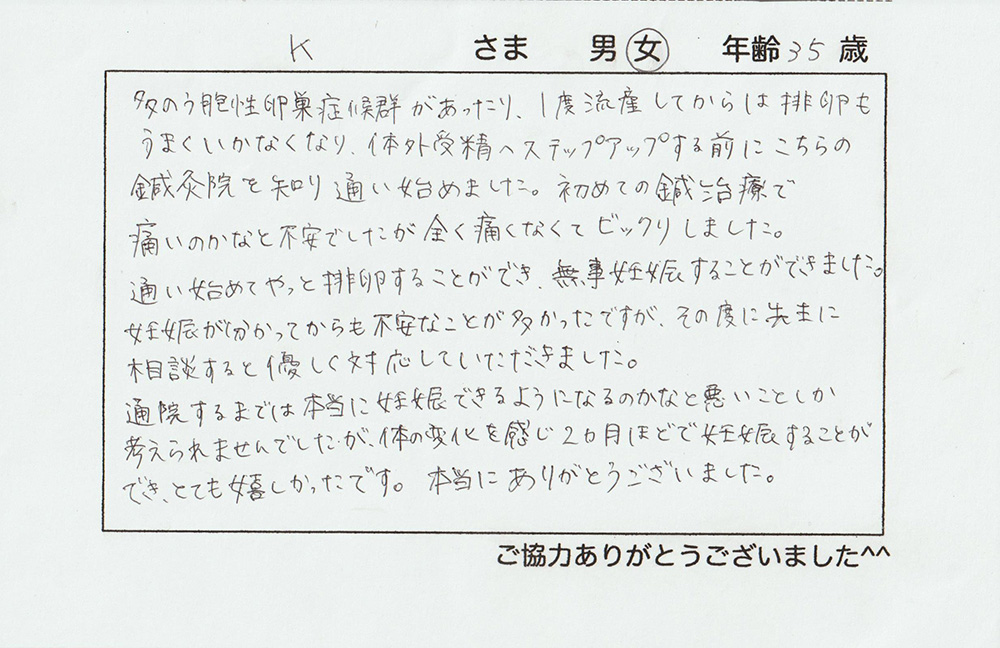 K さま 男 女 年齢 35 歳
多のう胞性卵巣症候群があったり、1度流産してからは排卵も
うまくいかなくなり、体外受精へステップアップする前にこちらの
鍼灸院を知り通い始めました。初めての鍼治療で
痛いのかなと不安でしたが全く痛くなくてビックリしました。
通い始めてやっと排卵することができ、無事妊娠することができました。
妊娠が分かってからも不安なことが多かったですが、その度に先生に
相談すると優しく対応していただきました。
通院するまでは本当に妊娠できるようになるのかなと悪いことしか
考えられませんでしたが、体の変化を感じ2カ月ほどで妊娠することが
でき、とても嬉しかったです。本当にありがとうございました。
ご協力ありがとうございました^^